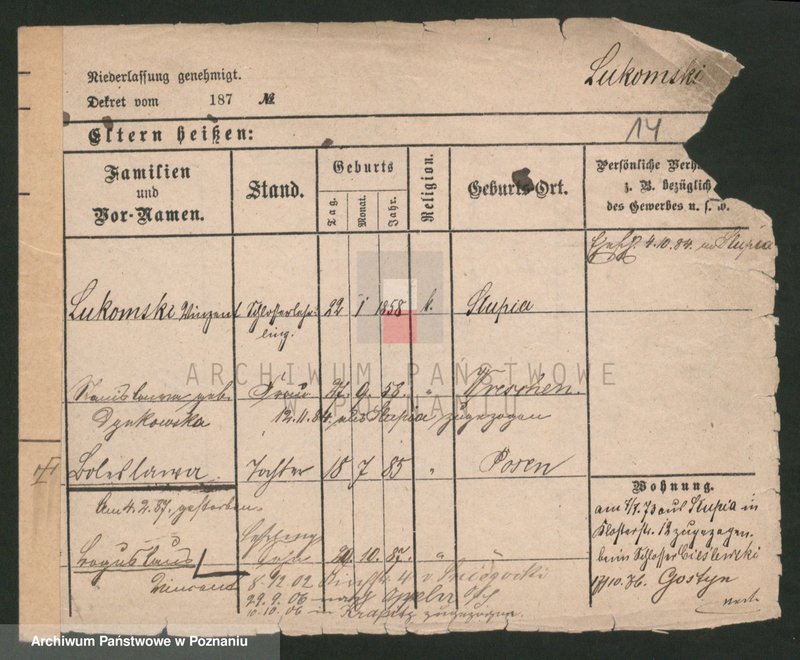 Lukomski
Niederlassung genehmigt.
Dekret vom 187 №
14
Eltern heißen:
Familien und Vor-Namen.
Stand.
Geburts
Tag.
Monat.
Jahr.
Religion.
Geburts-Ort.
Persönliche Verh
z. B. bezüglich
des Gewerbes u. s. w.
4.10.84. Slupia
Lukomski Vinzent Schlosserlehr- 22 1 1858 k. Slupia
ling.
Stanislawa geb. Frau 27. 9. 58. " Wreschen.
Dynkowska 12.11.84. aus Slupia zugezogen
Boleslawa Tochter 18 7 85 " Posen
Am 4.2.87. gestorben.
Wohnung.
am 7/1. 73 aus Slupia in
Klosterstr. 12 zugezogen.
beim Schlosser Cieslewski
10. 86. Gostyn
Boguslaus Sohn 10. 87. " "
8 02 4 v.
29.9.06 nach
10.10.06 in zugezogen.
ARCHIWUM PAŃSTWOWE
W POZNANIU
Archiwum Państwowe w Poznaniu